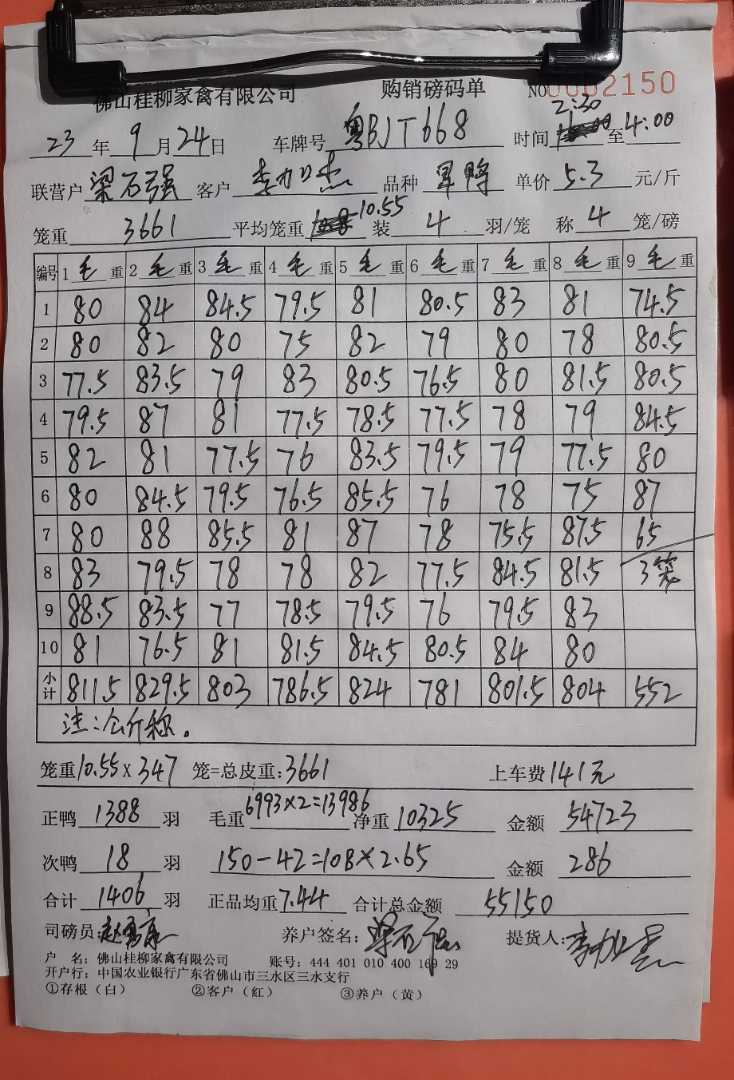 佛山桂柳家禽有限公司 购销磅码单 NO 0002150
23 年 9 月 24 日 车牌号 粤BJT668 时间 2:30 至 4:00
联营户 梁石强 客户 李 杰 品种 旱鸭 单价 5.3 元/斤
笼重 3661 平均笼重 10.55 装 4 羽/笼 称 4 笼/磅
编号 1 毛 重 2 毛 重 3 毛 重 4 毛 重 5 毛 重 6 毛 重 7 毛 重 8 毛 重 9 毛 重
1 80 84 84.5 79.5 81 80.5 83 81 74.5
2 80 82 80 75 82 79 80 78 80.5
3 77.5 83.5 79 83 80.5 76.5 80 81.5 80.5
4 79.5 87 81 77.5 78.5 77.5 78 79 84.5
5 82 81 77.5 76 83.5 79.5 79 77.5 80
6 80 84.5 79.5 76.5 85.5 76 78 75 87
7 80 88 85.5 81 87 78 75.5 87.5 65
8 83 79.5 78 78 82 77.5 84.5 81.5 3笼
9 88.5 83.5 77 78.5 79.5 76 79.5 83
10 81 76.5 81 81.5 84.5 80.5 84 80
小计 811.5 829.5 803 786.5 824 781 801.5 804 552
注:公斤称。
笼重 10.55×347 笼=总皮重:3661 上车费 141元
正鸭 1388 羽 毛重 6993×2=13986 净重 10325 金额 54723
次鸭 18 羽 150-42=108×2.65 金额 286
合计 1406 羽 正品均重 7.44 合计总金额 55150
司磅员: 养户签名:梁石强 提货人:李 杰
户 名:佛山桂柳家禽有限公司 账号:444 401 010 400 169 29
开户行:中国农业银行广东省佛山市三水区三水支行
①存根(白) ②客户(红) ③养户(黄)